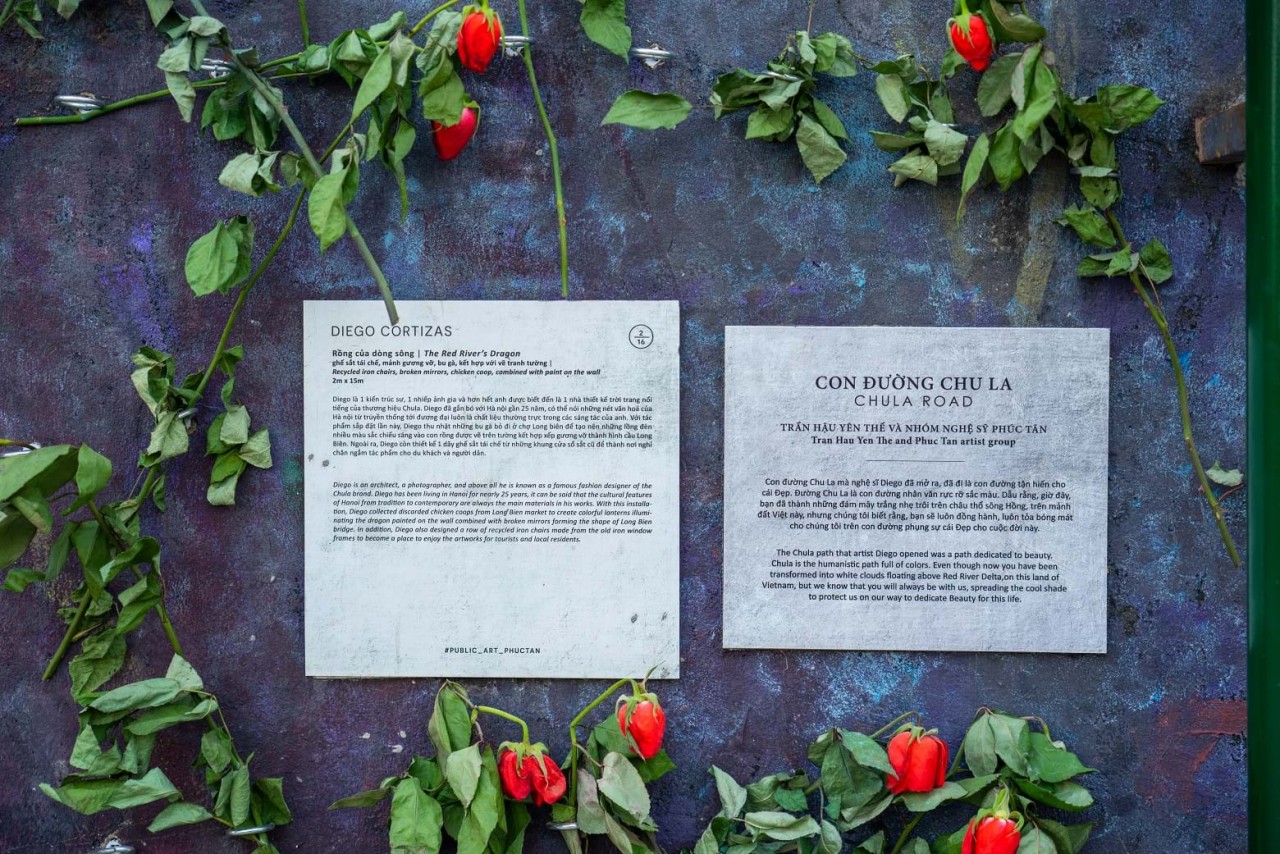 DIEGO CORTIZAS
2
16
Rồng của dòng sông | The Red River's Dragon
ghế sắt tái chế, mảnh gương vỡ, bu gà, kết hợp với vẽ tranh tường |
Recycled iron chairs, broken mirrors, chicken coop, combined with paint on the wall
2m x 15m
Diego là 1 kiến trúc sư, 1 nhiếp ảnh gia và hơn hết anh được biết đến là 1 nhà thiết kế thời trang nổi
tiếng của thương hiệu Chula. Diego đã gắn bó với Hà nội gần 25 năm, có thể nói những nét văn hoá của
Hà nội từ truyền thống tới đương đại luôn là chất liệu thường trực trong các sáng tác của anh. Với tác
phẩm sắp đặt lần này, Diego thu nhặt những bu gà bỏ đi ở chợ Long biên để tạo nên những lồng đèn
nhiều màu sắc chiếu ráng vào con rồng được vẽ trên tường kết hợp xếp gương vỡ thành hình cầu Long
Biên. Ngoài ra, Diego còn thiết kế 1 dãy ghế sắt tái chế từ những khung cửa sổ sắt cũ để thành nơi nghỉ
chân ngắm tác phẩm cho du khách và người dân.
Diego is an architect, a photographer, and above all he is known as a famous fashion designer of the
Chula brand. Diego has been living in Hanoi for nearly 25 years, it can be said that the cultural features
of Hanoi from tradition to contemporary are always the main materials in his works. With this installa-
tion, Diego collected discarded chicken coops from Long Bien market to create colorful lanterns illumi-
nating the dragon painted on the wall combined with broken mirrors forming the shape of Long Bien
bridge. In addition, Diego also designed a row of recycled iron chairs made from the old iron window
frames to become a place to enjoy the artworks for tourists and local residents.
#PUBLIC_ART_PHUCTAN
CON ĐƯỜNG CHU LA
CHULA ROAD
TRẦN HẬU YÊN THẾ VÀ NHÓM NGHỆ SỸ PHÚC TÂN
Tran Hau Yen The and Phuc Tan artist group
Con đường Chu La mà nghệ sĩ Diego đã mở ra, đã đi là con đường tận hiến cho
cái Đẹp. Đường Chu La là con đường nhân văn rực rỡ sắc màu. Dẫu rằng, giờ đây,
bạn đã thành những đám mây trắng nhẹ trôi trên châu thổ sông Hồng, trên mảnh
đất Việt này, nhưng chúng tôi biết rằng, bạn sẽ luôn đồng hành, luôn tỏa bóng mát
cho chúng tôi trên con đường phụng sự cái Đẹp cho cuộc đời này.
The Chula path that artist Diego opened was a path dedicated to beauty.
Chula is the humanistic path full of colors. Even though now you have been
transformed into white clouds floating above Red River Delta,on this land of
Vietnam, but we know that you will always be with us, spreading the cool shade
to protect us on our way to dedicate Beauty for this life.